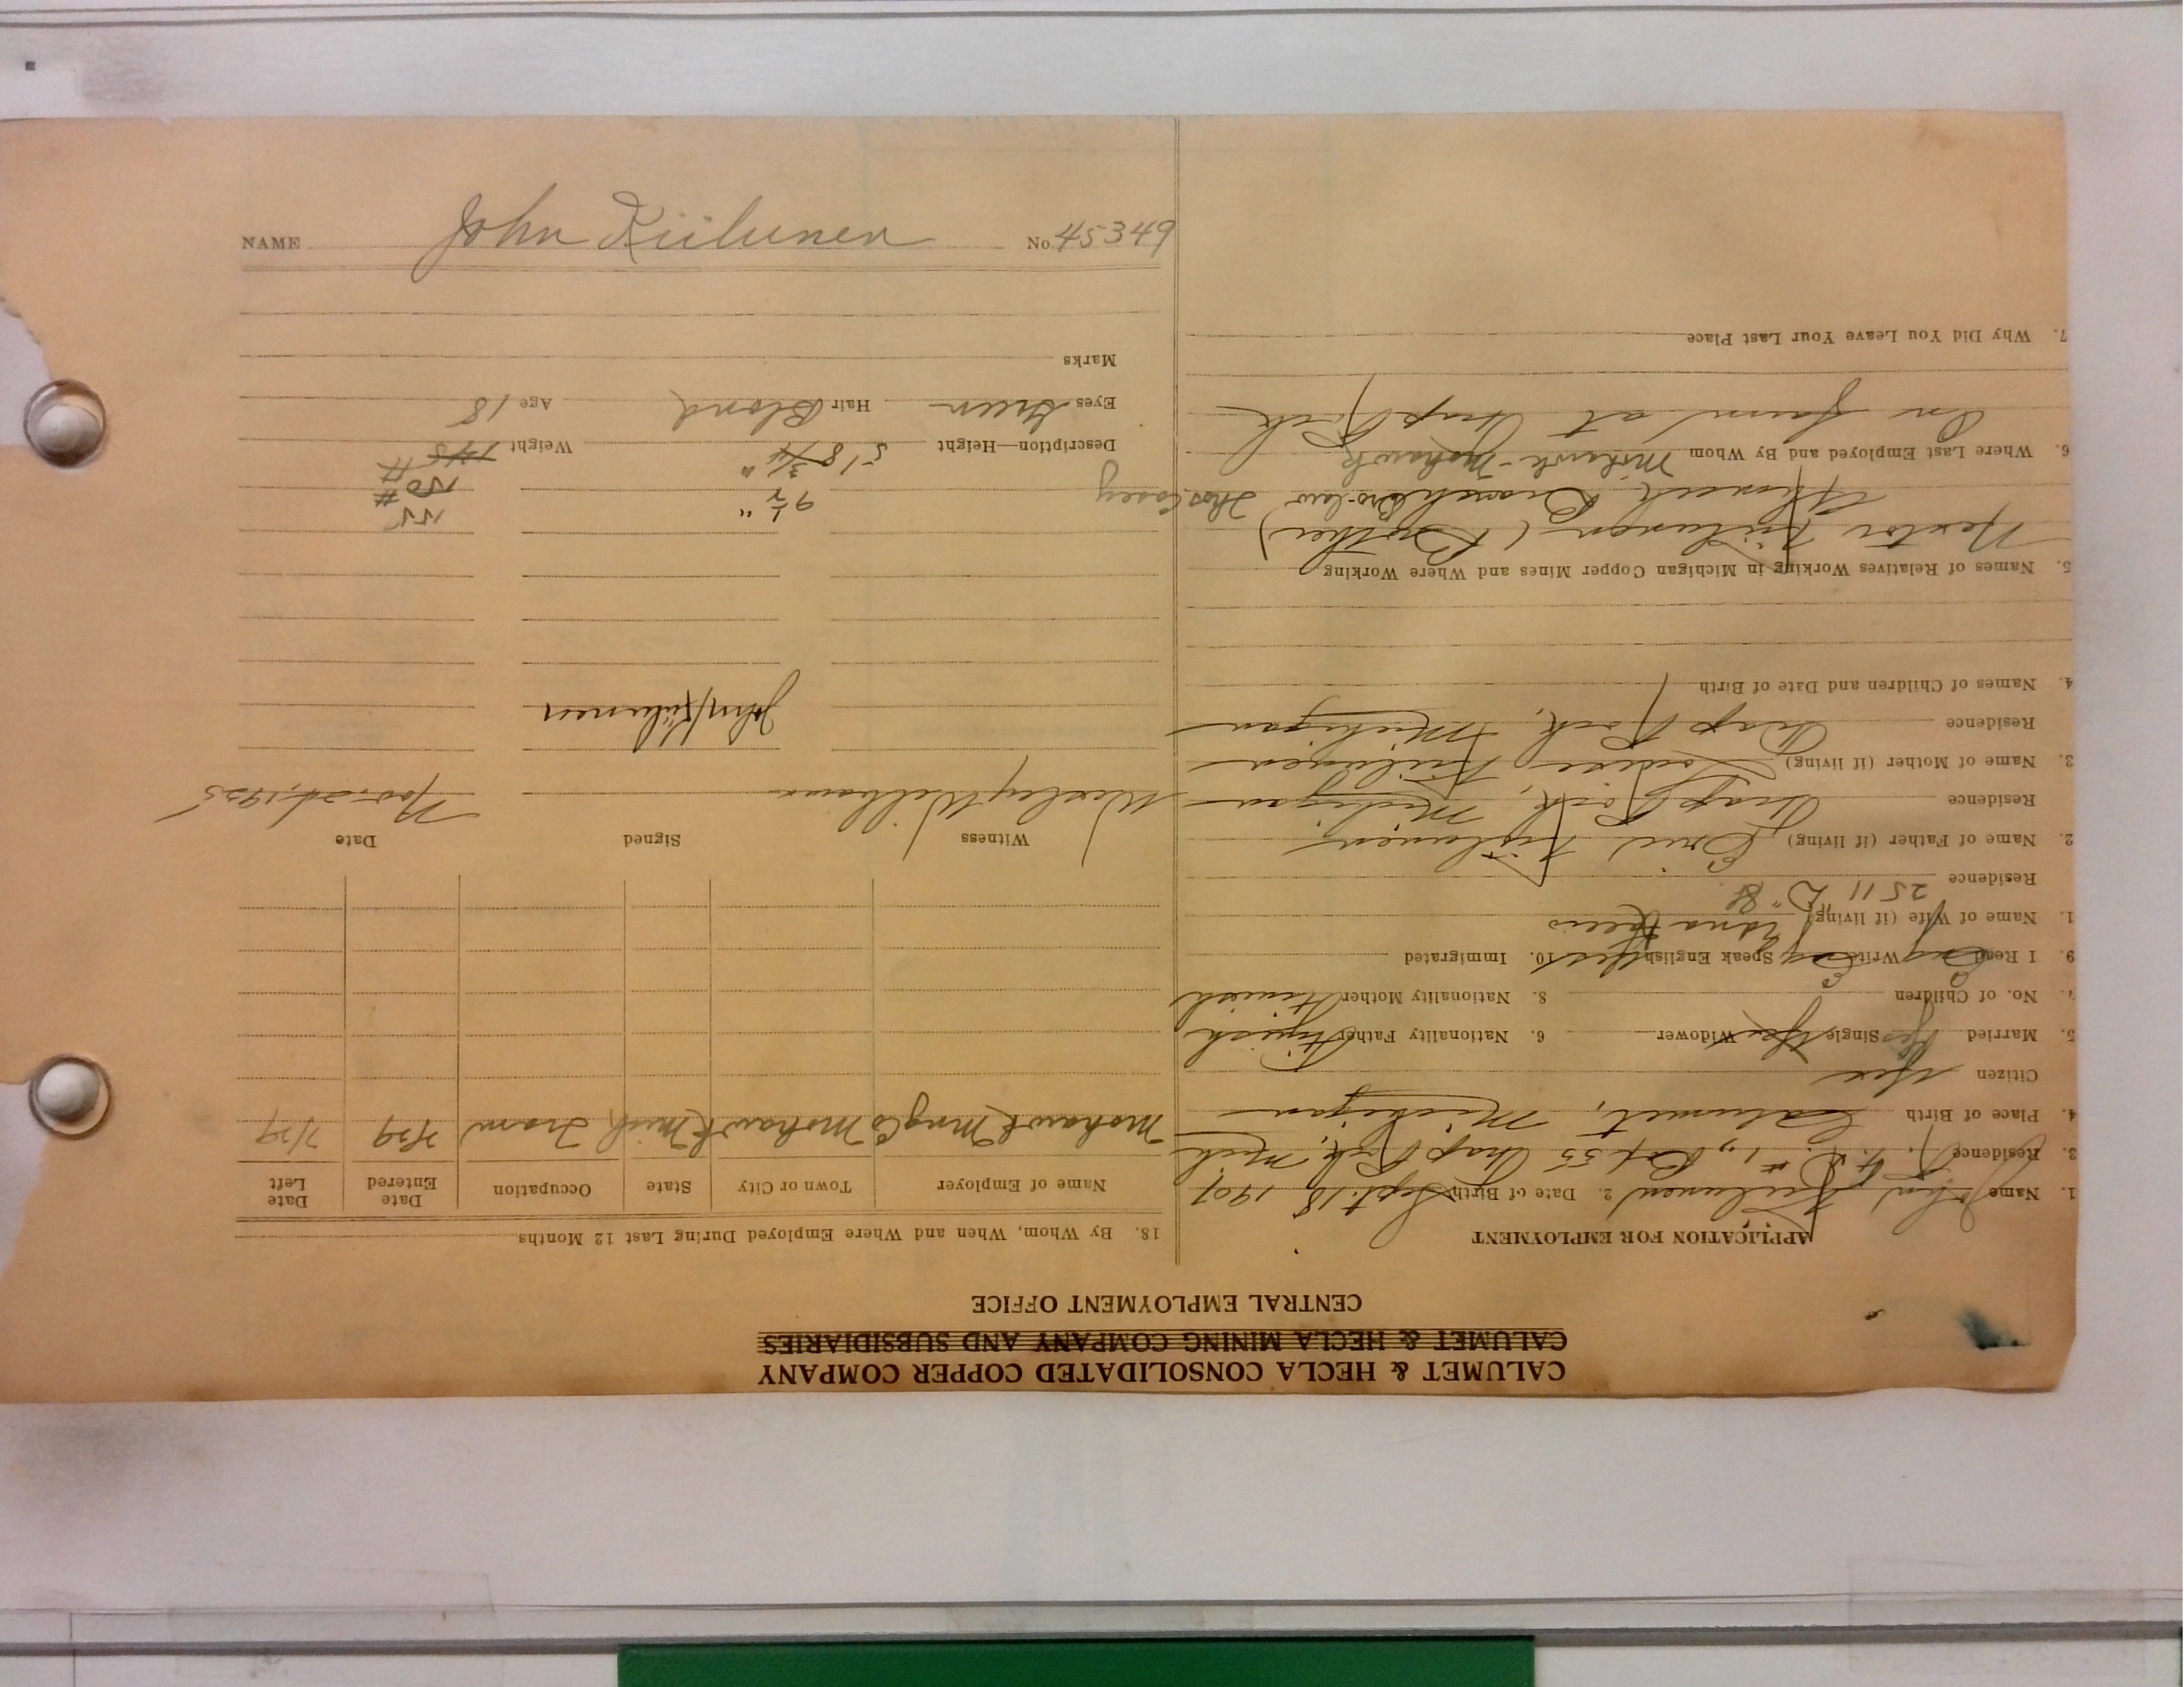 CALUMET & HECLA CONSOLIDATED COPPER COMPANY
CALUMET & HECLA MINING COMPANY AND SUBSIDIARIES
CENTRAL EMPLOYMENT OFFICE
APPLICATION FOR EMPLOYMENT
1. Name John Kiilunen 2. Date of Birth Sept. 18 1907
3. Residence R.F.D. #1, Box 55 Trap Rock, Mich
4. Place of Birth Calumet, Michigan
Citizen Yes
5. Married Yes Single Yes Widower 6. Nationality Father Finnish
7. No. of Children 8. Nationality Mother Finnish
9. I Read Eng Write Eng Speak English Yes 10. Immigrated
1. Name of Wife (if living) Edna
Residence 2511 "D" St.
2. Name of Father (if living) Eric Kiilunen
Residence Trap Rock, Michigan
3. Name of Mother (if living) Kiilunen
Residence Trap Rock, Michigan
4. Names of Children and Date of Birth
5. Names of Relatives Working in Michigan Copper Mines and Where Working
Kiilunen (Brother)
Ahmeek Branch Bro-law Thos. Cosey
6. Where Last Employed and By Whom Mohawk - Mohawk
On farm at Trap Rock
7. Why Did You Leave Your Last Place
18. By Whom, When and Where Employed During Last 12 Months
Name of Employer Town or City State Occupation Date Entered Date Left
Mohawk Mng Co Mohawk Mich Tram 7/29
Witness Signed Date
Wesley Williams Nov. 1925
John Kiilunen
9 1/2 " 155
150 #
Description—Height 5' 8 3/4 " Weight 145 #
Eyes Green Hair Blond Age 18
Marks
NAME John Kiilunen No. 45349